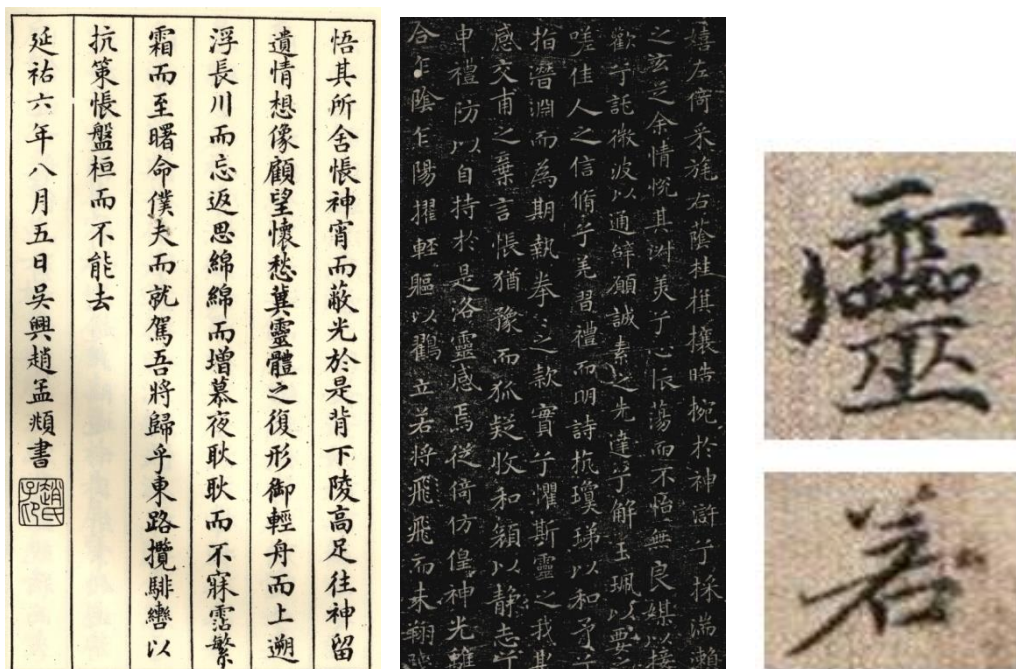 悟其所舍悵神宵而蔽光於是背下陵高足往神留
遺情想像顧望懷愁冀靈體之復形御輕舟而上遡
浮長川而忘返思綿綿而增慕夜耿耿而不寐霑繁
霜而至曙命僕夫而就駕吾將歸乎東路攬騑轡以
抗策悵盤桓而不能去
延祐六年八月五日吳興趙孟頫書
趙氏子卬
嬉左倚采旄右蔭桂棋攘晧捥於神滸兮採湍瀨
之玄芝余情悅其淑美兮心振蕩而不怡無良媒以接
歡兮託微波以通辭願誠素之先達兮解玉珮以要之
嗟佳人之信脩兮羌習禮而明詩抗瓊珶以和予兮
指潛淵而為期執拳之款實兮懼斯靈之我其
感交甫之棄言悵猶豫而狐疑收和顏以靜志兮
申禮防以自持於是洛靈感焉從倚仿偟神光離
合乍陰乍陽擢輕軀以鶴立若將飛飛而未翔
靈
若